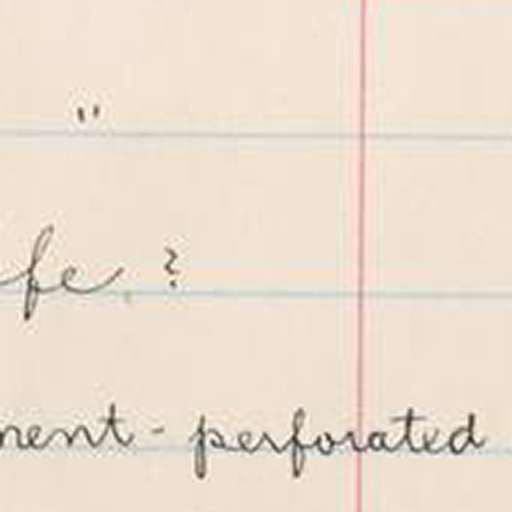 "
fe. ?
ment - perforated